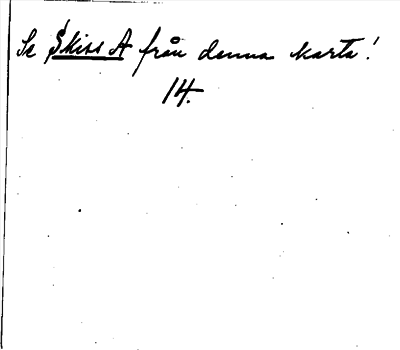 Se Skiss A från denna karta!
14.